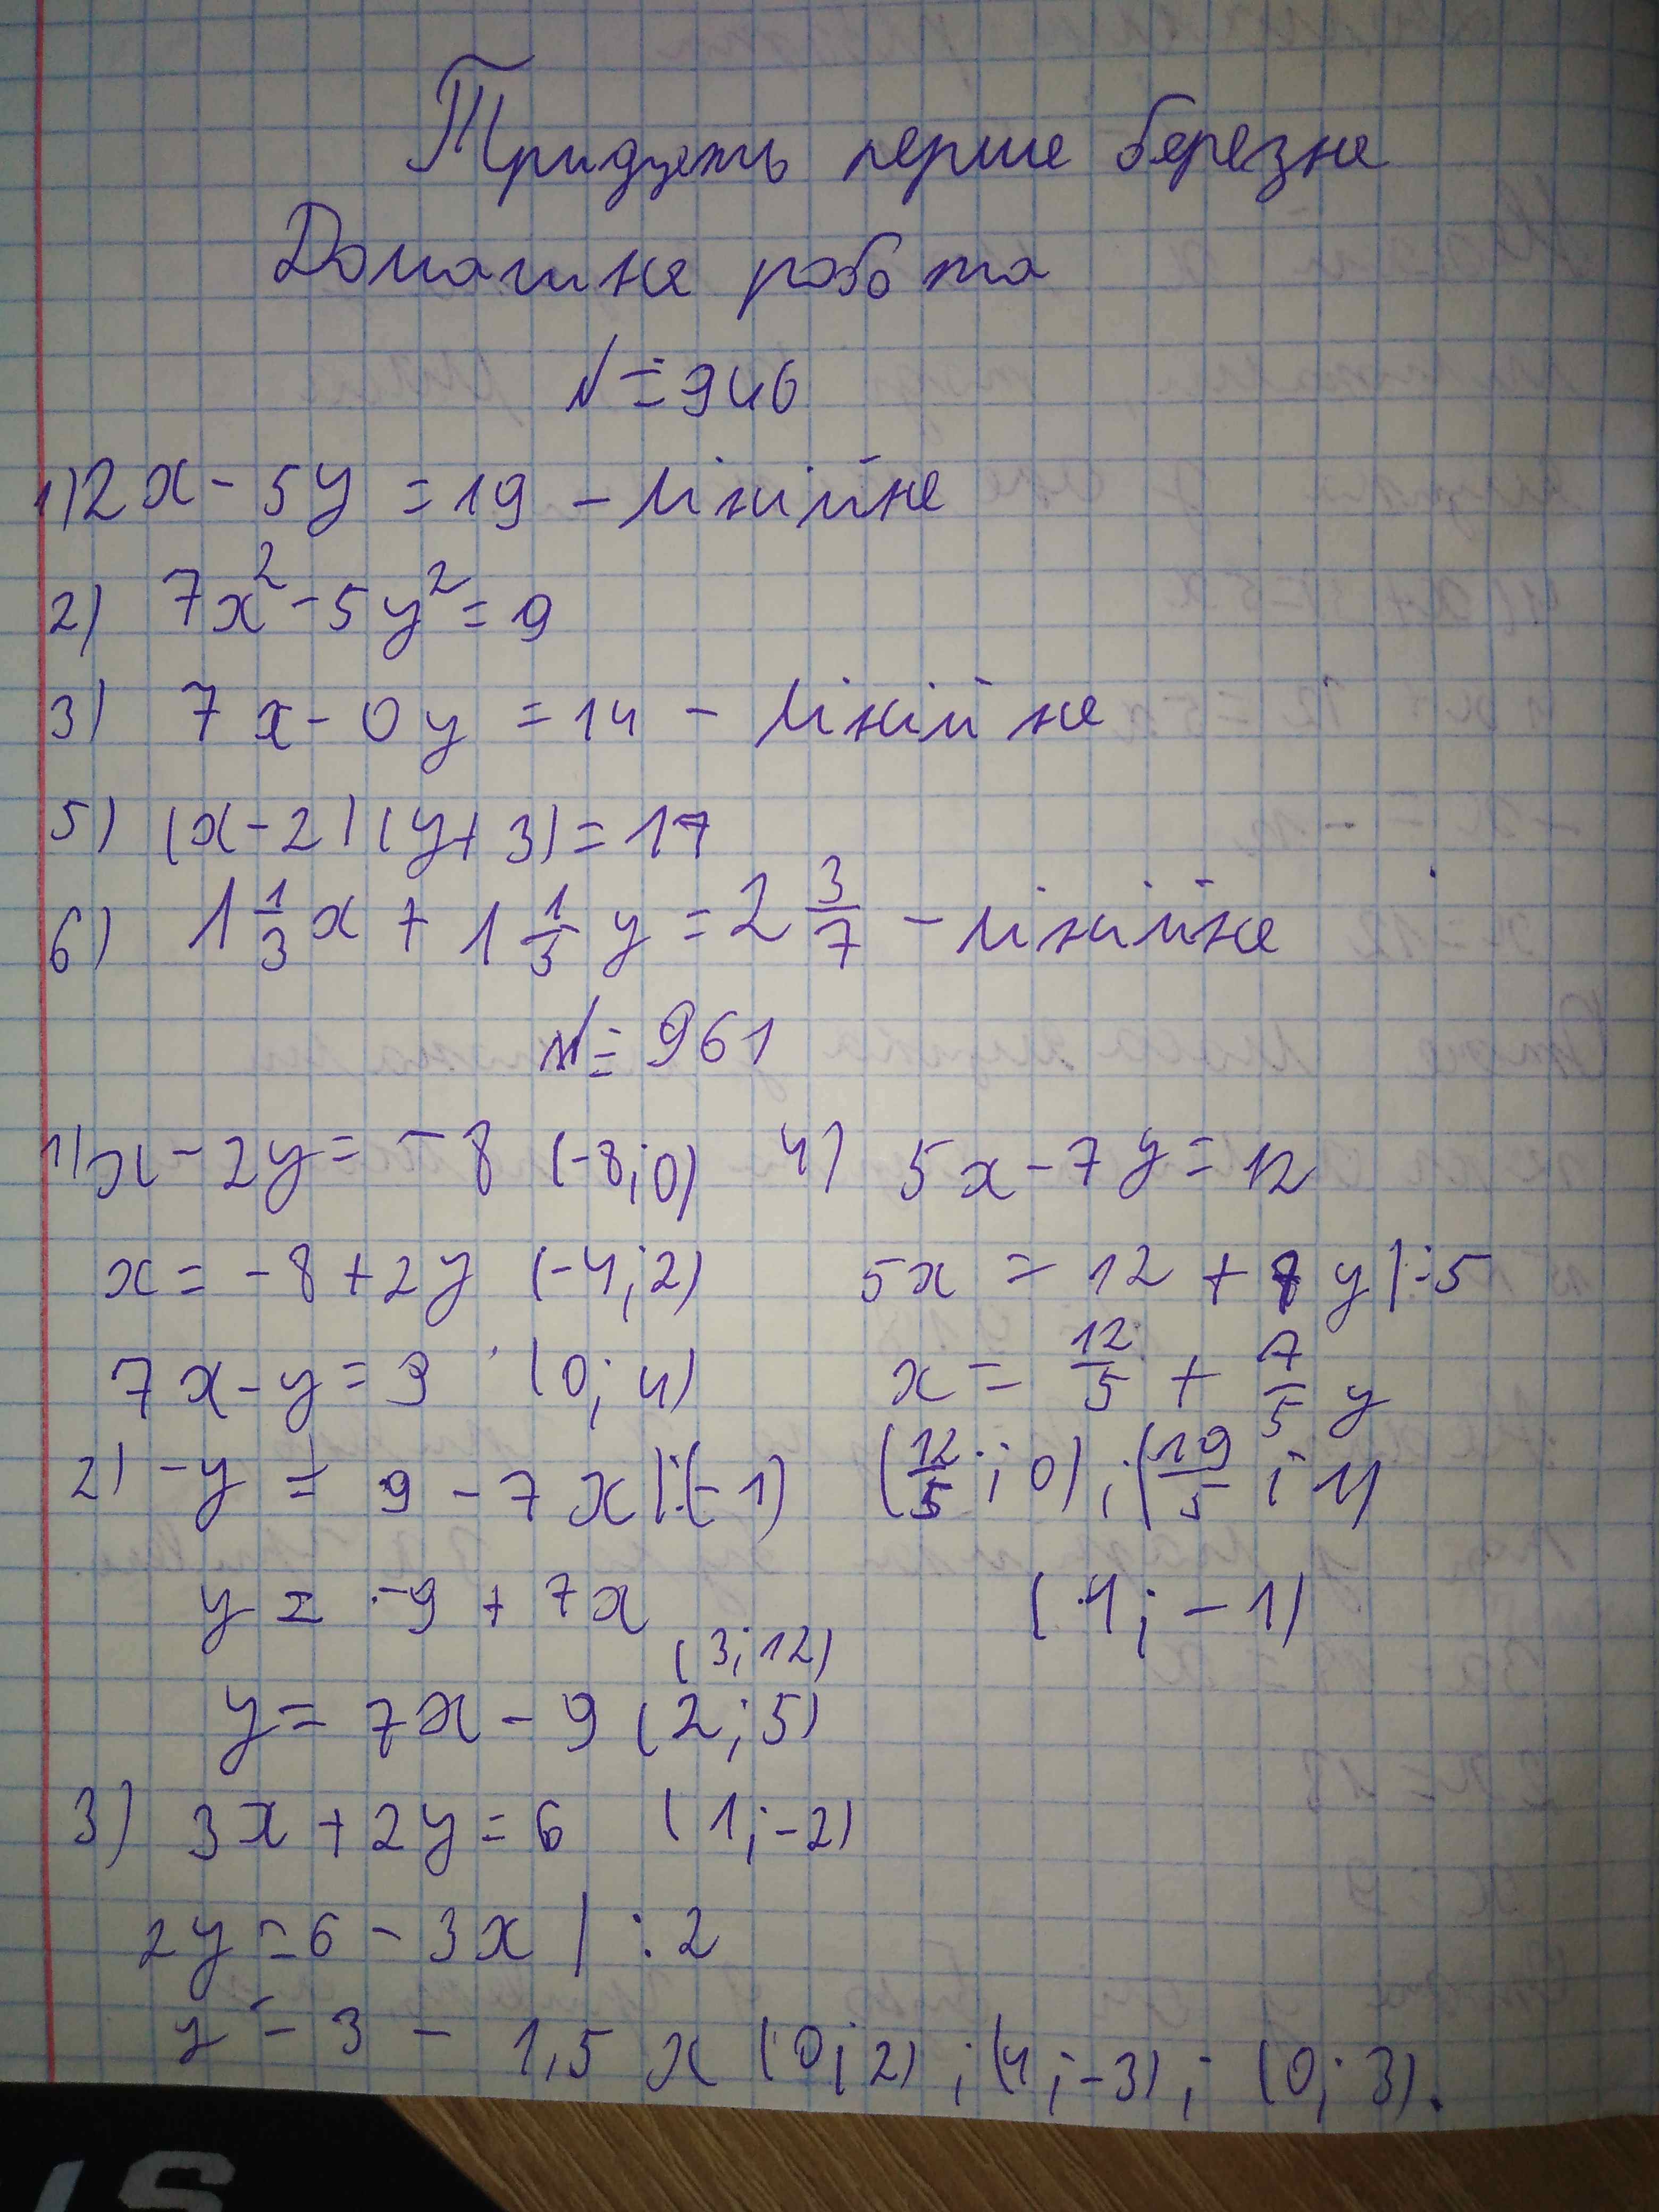 Тридцять перше березня
Домашня робота
№ 946
1) 2x - 5y = 19 - лінійне
2) 7x² - 5y² = 9
3) 7x - 0y = 14 - лінійне
5) (x - 2)(y + 3) = 17
6) 1 1/3 x + 1 1/3 y = 2 3/7 - лінійне
№ 961
1) x - 2y = -8 (-8; 0)
x = -8 + 2y (-4; 2)
7x - y = 9 (0; 4)
2) -y = 9 - 7x |:(-1)
y = -9 + 7x
(3; 12)
y = 7x - 9 (2; 5)
3) 3x + 2y = 6 (1; -2)
2y = 6 - 3x | : 2
y = 3 - 1,5x (0; 2) ; (4; -3) ; (0; 3).
4) 5x - 7y = 12
5x = 12 + 7y |:5
x = 12/5 + 7/5 y
(12/5 ; 0) ; (19/5 ; 1)
(1; -1)